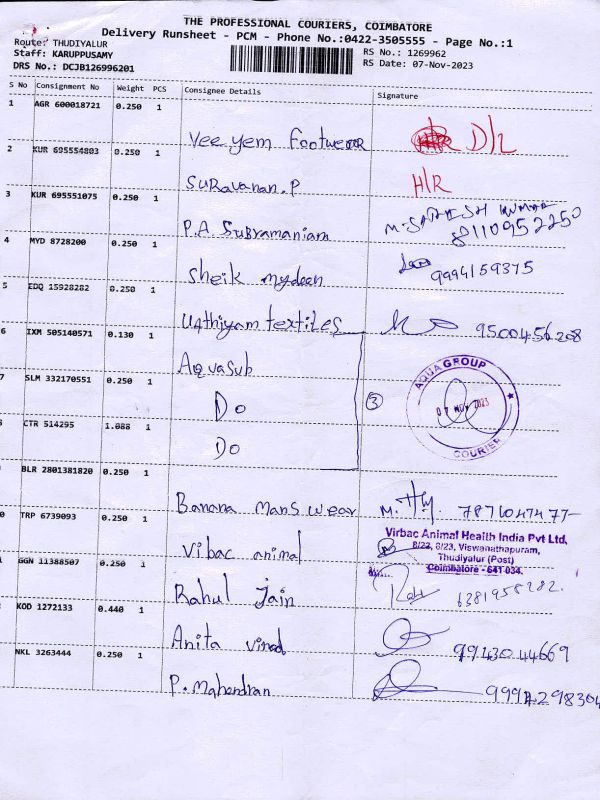 THE PROFESSIONAL COURIERS, COIMBATORE
Delivery Runsheet - PCM - Phone No.:0422-3505555 - Page No.:1
Route: THUDIYALUR
Staff: KARUPPUSAMY
DRS No.: DCJB126996201
RS No.: 1269962
RS Date: 07-Nov-2023
S No Consignment No Weight PCS Consignee Details Signature
1 AGR 600018721 0.250 1 Vee yem footwear D/L
2 KUR 695554803 0.250 1 Suravanan.P H/R
3 KUR 695551075 0.250 1 P.A. Subramaniam M.SATHISH KUMAR
8110952250
4 MYD 8728200 0.250 1 Sheik mydeen 9994159375
5 EDQ 15928282 0.250 1 Uathiyam textiles 9500456208
6 IXM 505140571 0.130 1 Aqvasub
7 SLM 332170551 0.250 1 Do 3
AQUA GROUP
07 NOV 2023
COURIER
CTR 514295 1.088 1 Do
BLR 2801381820 0.250 1 Banana mans wear M. 7871047477
0 TRP 6739093 0.250 1 Virbac animal
Virbac Animal Health India Pvt Ltd,
8/22, 8/23, Viswanathapuram,
Thudiyalur (Post)
Coimbatore - 641 034.
GGN 11388507 0.250 1 Rahul Jain 6381958282.
KOD 1272133 0.440 1 Anita vinod 9943044669
NKL 3263444 0.250 1 P. Mahendran 9994298304